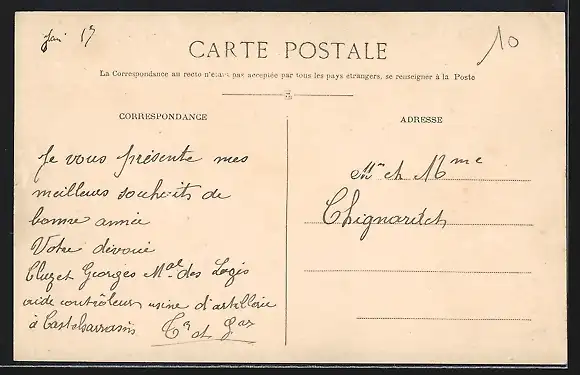 CARTE POSTALE
La Correspondance au recto n'étant pas acceptée par tous les pays étrangers, se renseigner à la Poste
CORRESPONDANCE
ADRESSE
10
Je vous présente mes
meilleurs souhaits de
bonne année
Votre dévoué
Cluzet Georges Mal des Logis
aide contrôleur usine d'artillerie
à Castelsarrasin
Tr et Gar
Mr et Mme